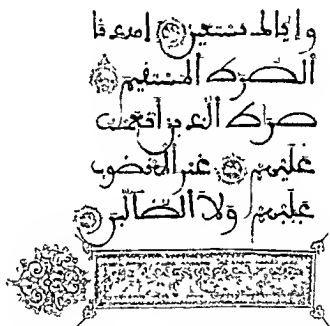 وإياك نستعين اهدنا
الصراط المستقيم
صراط الذين أنعمت
عليهم غير المغضوب
عليهم ولا الضالين